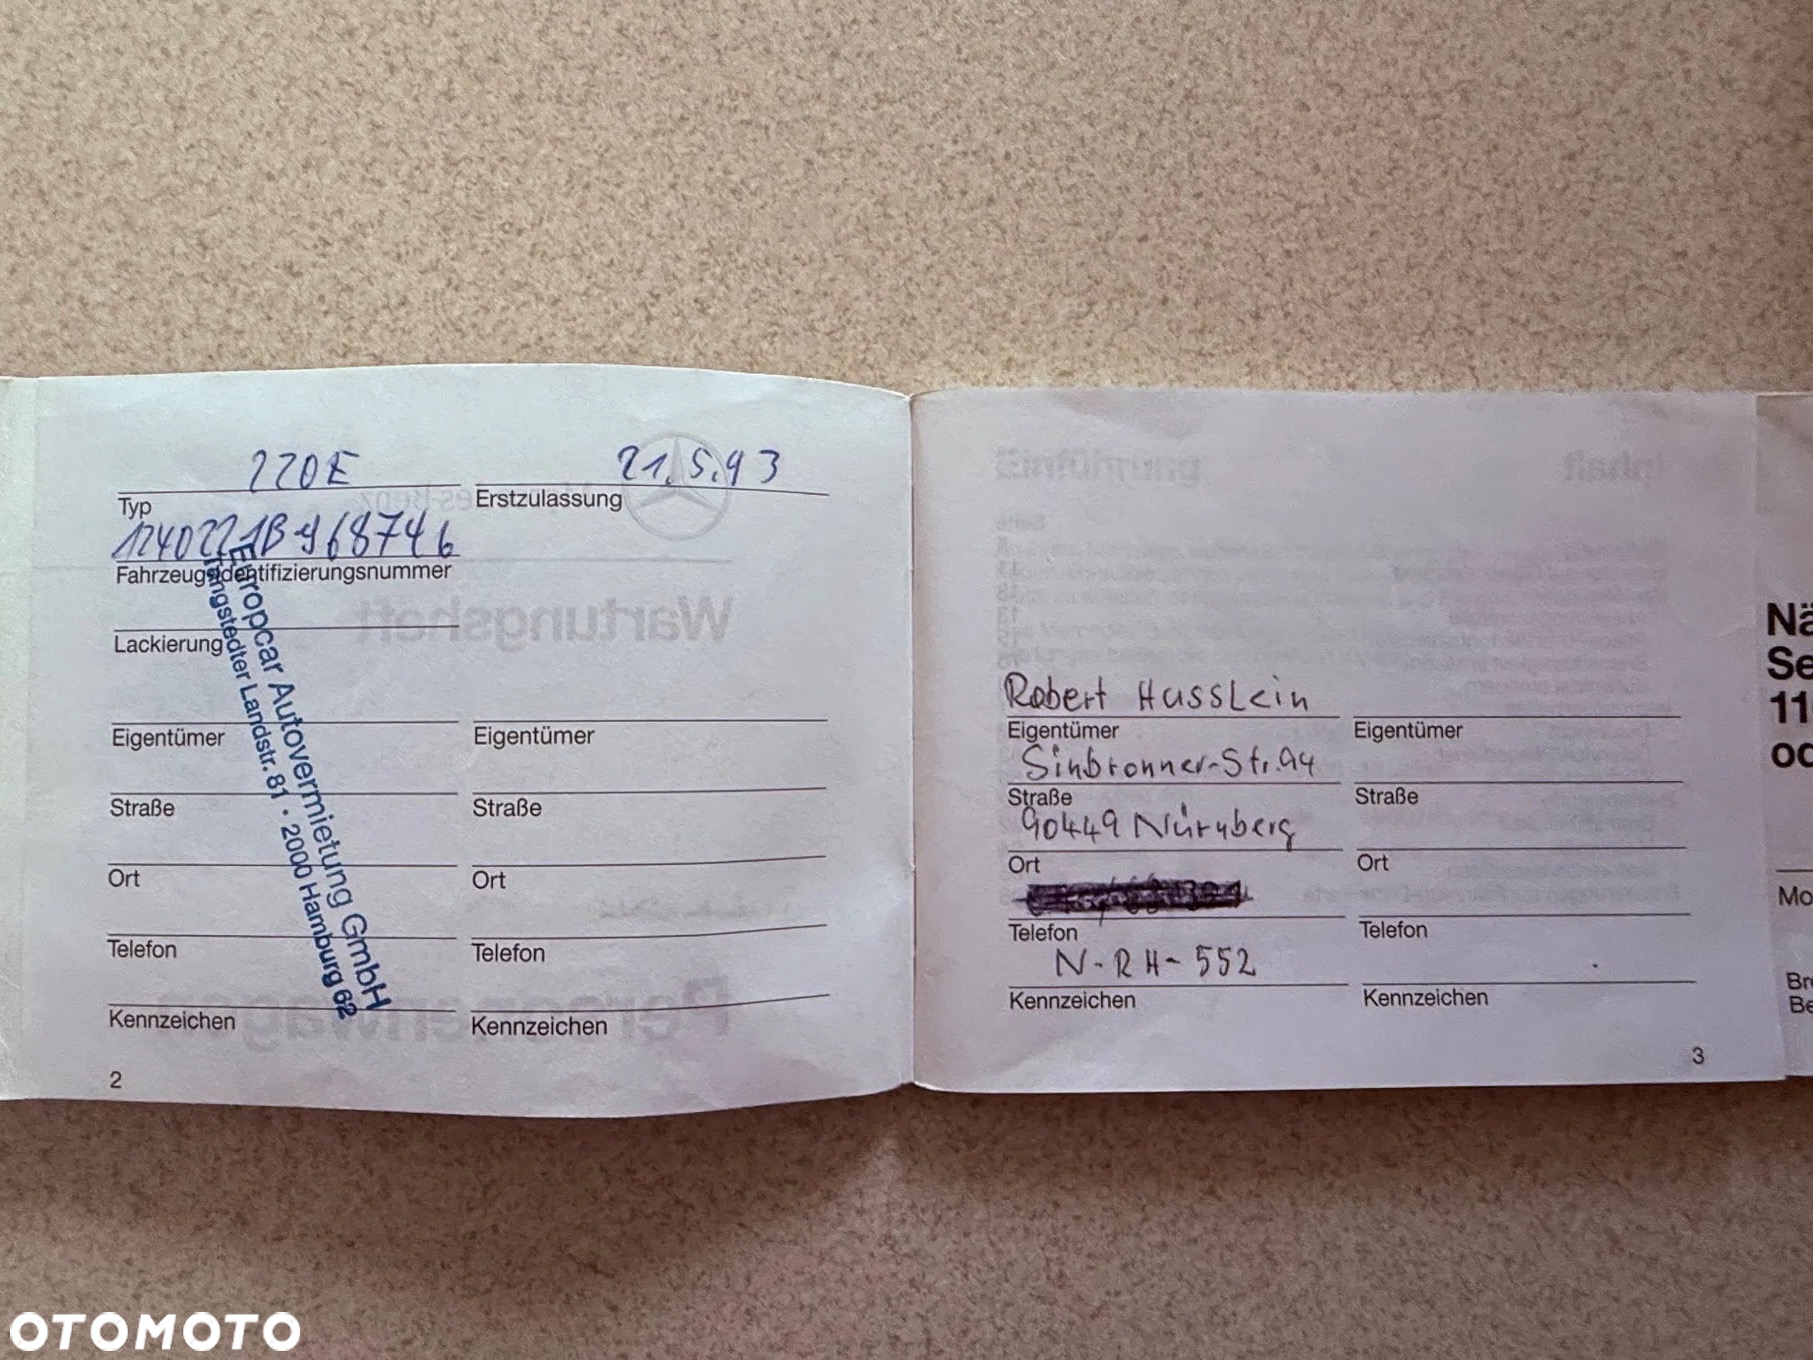 220E
21.5.93
Typ
Erstzulassung
124022 1B 968746
Fahrzeugidentifizierungsnummer
Lackierung
Europcar Autovermietung GmbH
Tangstedter Landstr. 81 · 2000 Hamburg 62
Eigentümer
Eigentümer
Straße
Straße
Ort
Ort
Telefon
Telefon
Kennzeichen
Kennzeichen
2
Wartungsheft
Personenwagen
Einführung
Inhalt
Robert Husslein
Eigentümer
Eigentümer
Sinbronner-Str. 94
Straße
Straße
90449 Nürnberg
Ort
Ort
Telefon
Telefon
N-RH-552
Kennzeichen
Kennzeichen
3
Nä
Se
11
od
Mo
Br
Be
OTOMOTO